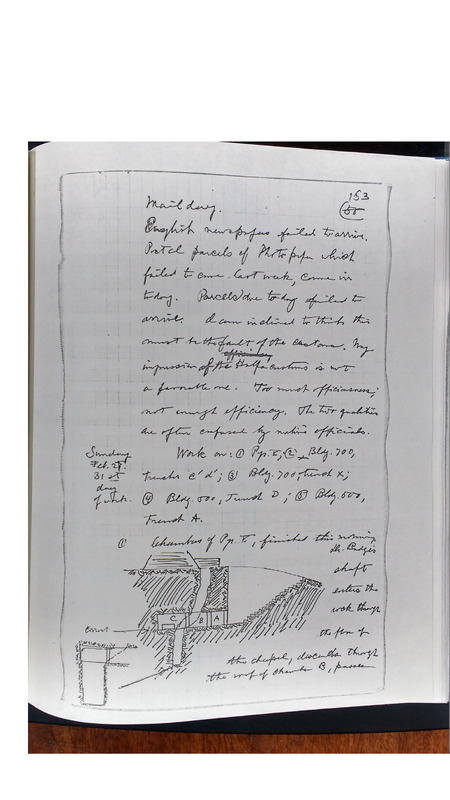 153
Mail day.
English newspapers failed to arrive.
Postal parcels of Photo paper which
failed to come last week, came in
today. Parcels due today failed to
arrive. I am inclined to think this
must be the fault of the customs. My
impression of the Halfa customs is not
a favorable one. Too much officiousness;
not enough efficiency. The two qualities
are often confused by native officials.
Sunday
Feb. 27.
31st
day
of work.
Work on: ① Pyr. E, ② Bldg. 700,
trenches C' d'; ③ Bldg. 700, trench X;
④ Bldg. 600, Trench D; ⑤ Bldg. 600,
Trench A.
① Chambers of Pyr. E, finished this morning
shaft
enters the
rock through
the floor of
the chapel, descends through
the roof of chamber B, passes
C B A